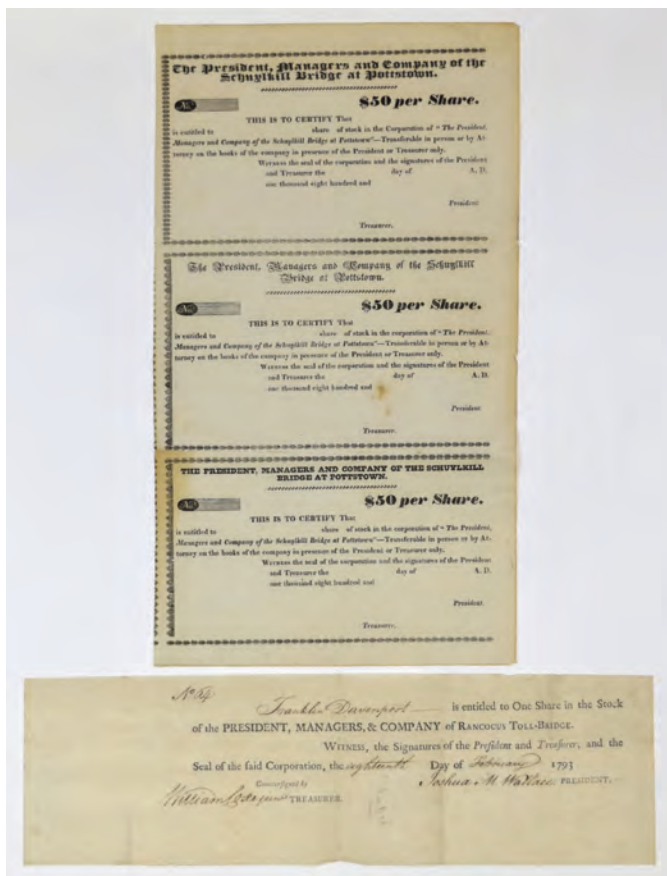 The President, Managers and Company of the
Schuylkill Bridge at Pottstown.
No. $50 per Share.
THIS IS TO CERTIFY That
is entitled to share of stock in the Corporation of "The President,
Managers and Company of the Schuylkill Bridge at Pottstown"—Transferable in person or by At-
torney on the books of the company in presence of the President or Treasurer only.
WITNESS the seal of the corporation and the signatures of the President
and Treasurer the day of A. D.
one thousand eight hundred and
President
Treasurer.
The President, Managers and Company of the Schuylkill
Bridge at Pottstown.
No. $50 per Share.
THIS IS TO CERTIFY That
is entitled to share of stock in the corporation of "The President,
Managers and Company of the Schuylkill Bridge at Pottstown"—Transferable in person or by At-
torney on the books of the company in presence of the President or Treasurer only.
WITNESS the seal of the corporation and the signatures of the President
and Treasurer the day of A. D.
one thousand eight hundred and
President
Treasurer.
THE PRESIDENT, MANAGERS AND COMPANY OF THE SCHUYLKILL
BRIDGE AT POTTSTOWN.
No. $50 per Share.
THIS IS TO CERTIFY That
is entitled to share of stock in the corporation of "The President,
Managers and Company of the Schuylkill Bridge at Pottstown"—Transferable in person or by At-
torney on the books of the company in presence of the President or Treasurer only.
WITNESS the seal of the corporation and the signatures of the President
and Treasurer the day of A. D.
one thousand eight hundred and
President.
Treasurer.
No 64
Franklin Davenport is entitled to One Share in the Stock
of the PRESIDENT, MANAGERS, & COMPANY of RANCOCUS TOLL-BRIDGE.
WITNESS, the Signatures of the President and Treasurer, and the
Seal of the said Corporation, the eighteenth Day of February 1793
Countersigned by Joshua M Wallace PRESIDENT.
William TREASURER.